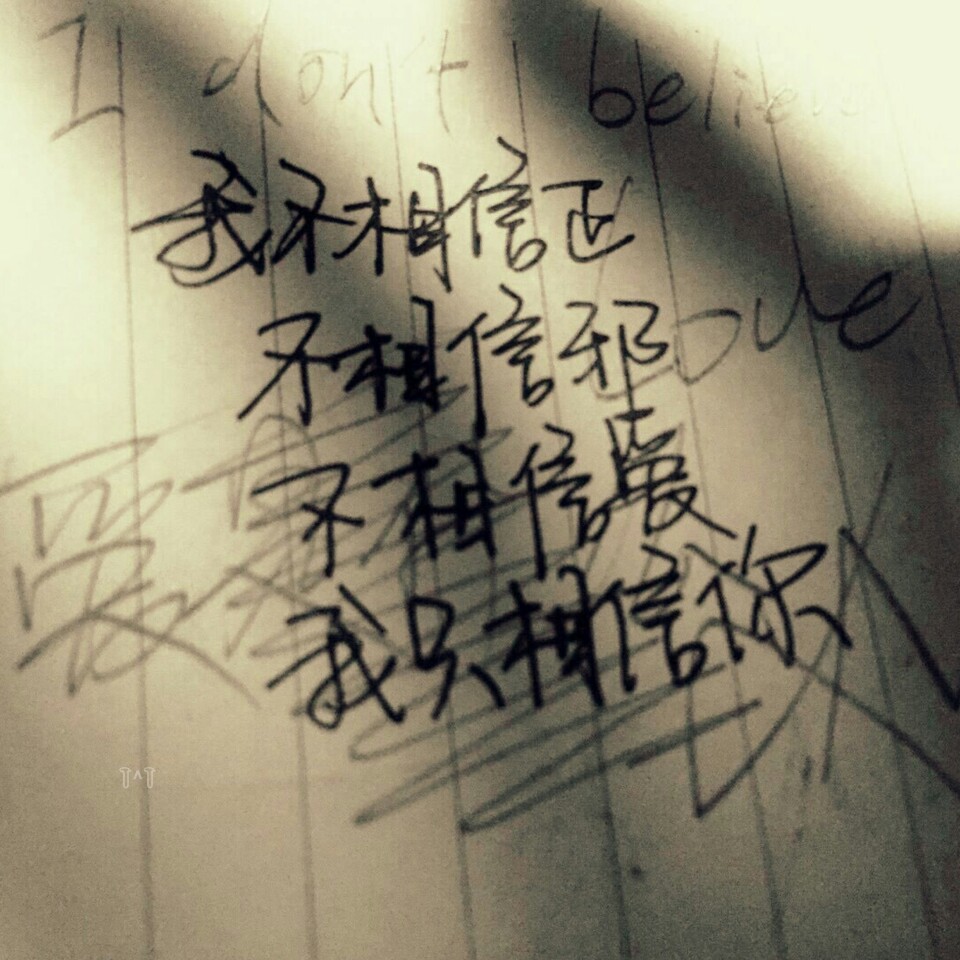 I don't believe
我不相信正
不相信邪
love
不相信爱
我只相信你
T^T